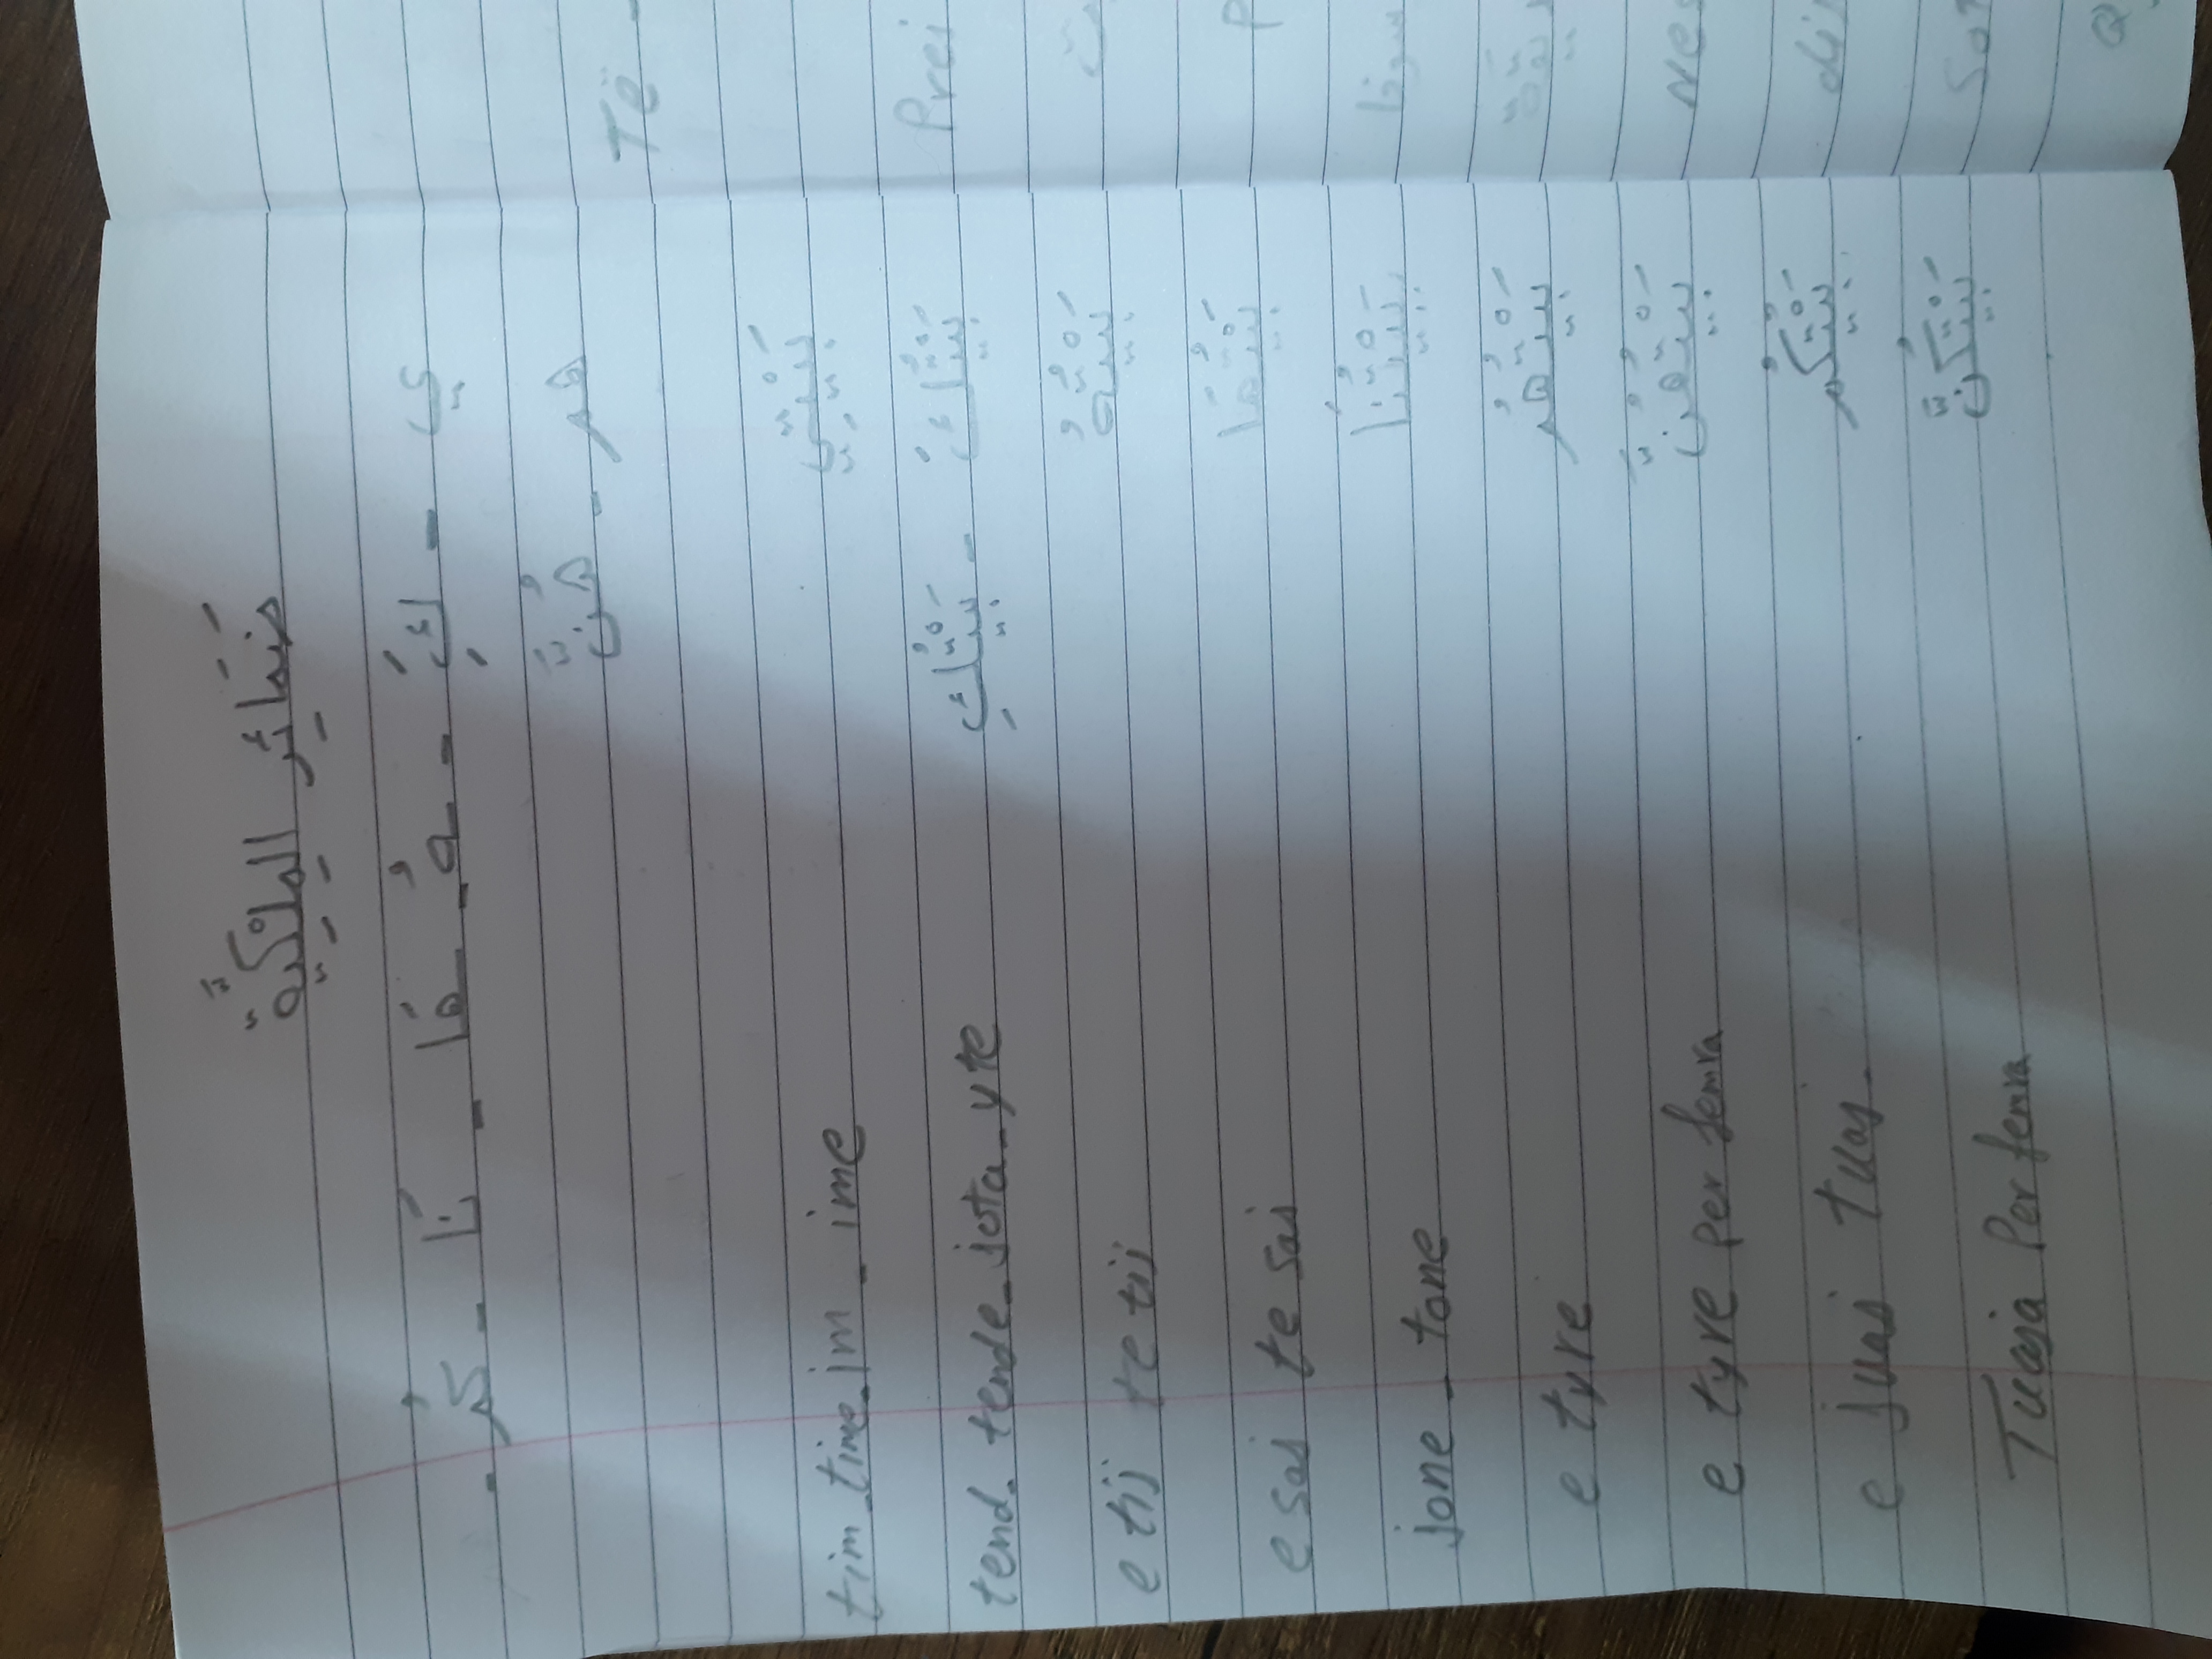 ضَمَائِر المِلْكِيَّة
ي - كَ - هُ - هَا - نَا - كُم -
هُم - هُنَّ
tim - time - im - ime بَيْتِي
tend - tende - jota - yte بَيْتُكَ - بَيْتُكِ
e tij te tij بَيْتُهُ
e saj te saj بَيْتُهَا
jone - tone بَيْتُنَا
e tyre بَيْتُهُم
e tyre per femra بَيْتُهُنَّ
e juaj tuaj بَيْتُكُم
Tuaja Per femra بَيْتُكُنَّ
Të
Prei